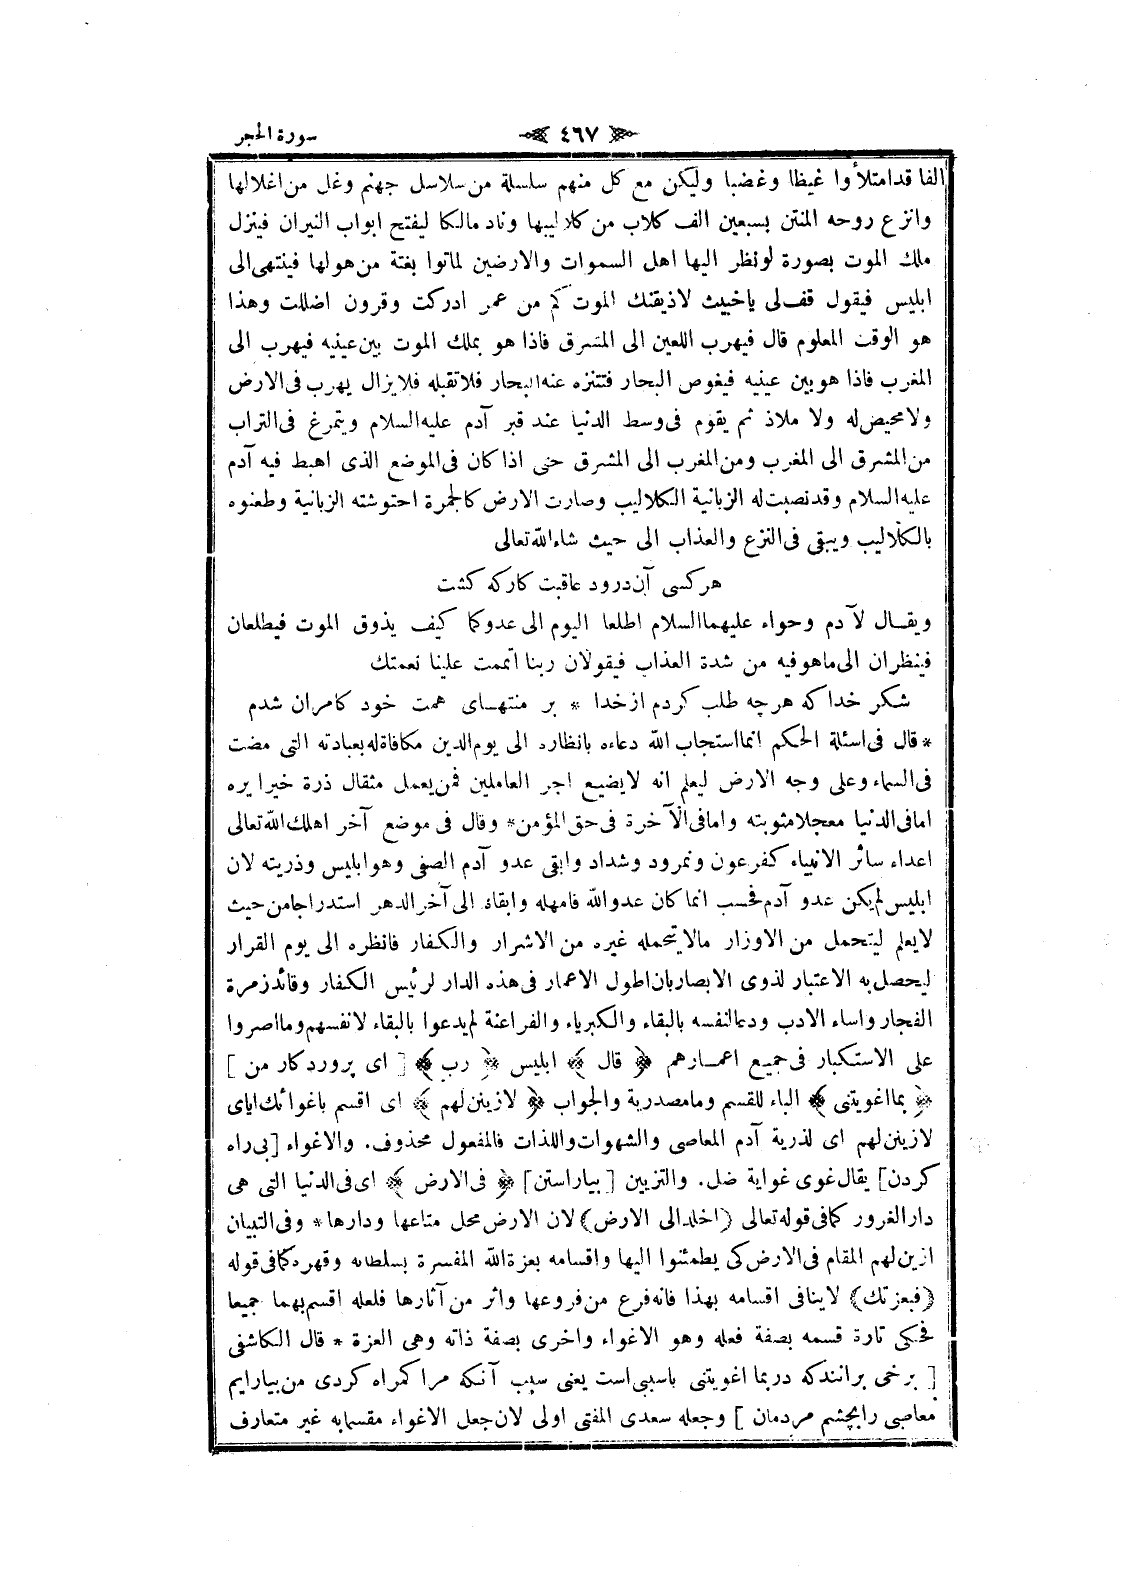 سورة الحجر
٤٦٧
الفا قد امتلأوا غيظا وغضبا وليكن مع كل منهم سلسلة من سلاسل جهنم وغل من اغلالها
وانزع روحه المنتن بسبعين الف كلاب من كلاليبها وناد مالكا ليفتح ابواب النيران فينزل
ملك الموت بصورة لونظر اليها اهل السموات والارضين لماتوا بغتة من هولها فينتهى الى
ابليس فيقول قف لى ياخبيث لاذيقنك الموت كم من عمر ادركت وقرون اضللت وهذا
هو الوقت المعلوم قال فيهرب اللعين الى المشرق فاذا هو بملك الموت بين عينيه فيهرب الى
المغرب فاذا هو بين عينيه فيغوص البحار فتتنزه عنه البحار فلا تقبله فلا يزال يهرب فى الارض
ولا محيص له ولا ملاذ ثم يقوم فى وسط الدنيا عند قبر آدم عليه السلام ويتمرغ فى التراب
من المشرق الى المغرب ومن المغرب الى المشرق حتى اذا كان فى الموضع الذى اهبط فيه آدم
عليه السلام وقد نصبت له الزبانية الكلاليب وصارت الارض كالجمرة احتوشته الزبانية وطعنوه
بالكلاليب ويبقى فى النزع والعذاب الى حيث شاء الله تعالى
هر كسى آن درود عاقبت كار كه كشت
ويقال لآدم وحواء عليهما السلام اطلعا اليوم الى عدوكما كيف يذوق الموت فيطلعان
فينظران الى ما هو فيه من شدة العذاب فيقولان ربنا اتممت علينا نعمتك
شكر خدا كه هرچه طلب كردم از خدا * بر منتهاى همت خود كامران شدم
* قال فى اسئلة الحكم انما استجاب الله دعاءه بانظاره الى يوم الدين مكافاة له بعبادته التى مضت
فى السماء وعلى وجه الارض ليعلم انه لا يضيع اجر العاملين فمن يعمل مثقال ذرة خيرا يره
اما فى الدنيا معجلا مثوبته واما فى الآخرة فى حق المؤمن * وقال فى موضع آخر اهلك الله تعالى
اعداء سائر الانبياء كفرعون ونمرود وشداد وابقى عدو آدم الصفى وهو ابليس وذريته لان
ابليس لم يكن عدو آدم فحسب انما كان عدو الله فامهله وابقاه الى آخر الدهر استدراجا من حيث
لا يعلم ليتحمل من الاوزار مالا يتحمله غيره من الاشرار والكفار فانظره الى يوم القرار
ليحصل به الاعتبار لذوى الابصار بان اطول الاعمار فى هذه الدار لرئيس الكفار وقائد زمرة
الفجار واساء الادب ودعا لنفسه بالبقاء والكبرياء والفراعنة لم يدعوا بالبقاء لانفسهم وما اصروا
على الاستكبار فى جميع اعمارهم ﴿ قال ﴾ ابليس ﴿ رب ﴾ [ اى پروردكار من ]
﴿ بما اغويتنى ﴾ الباء للقسم وما مصدرية والجواب ﴿ لازينن لهم ﴾ اى اقسم باغوائك اياى
لازينن لهم اى لذرية آدم المعاصى والشهوات واللذات فالمفعول محذوف. والاغواء [ بى راه
كردن ] يقال غوى غواية ضل. والتزيين [ بياراستن ] ﴿ فى الارض ﴾ اى فى الدنيا التى هى
دار الغرور كما فى قوله تعالى ( اخلد الى الارض ) لان الارض محل متاعها ودارها * وفى التبيان
ازين لهم المقام فى الارض كى يطمئنوا اليها واقسامه بعزة الله المفسرة بسلطانه وقهره كما فى قوله
( فبعزتك ) لا ينافى اقسامه بهذا فانه فرع من فروعها واثر من آثارها فلعله اقسم بهما جميعا
فحكى تارة قسمه بصفة فعله وهو الاغواء واخرى بصفة ذاته وهى العزة * قال الكاشفى
[ برخى برانند كه در بما اغويتنى با سببى است يعنى سبب آنكه مرا كمراه كردى من بيارايم
معاصى را بچشم مردمان ] وجعله سعدى المفتى اولى لان جعل الاغواء مقسما به غير متعارف